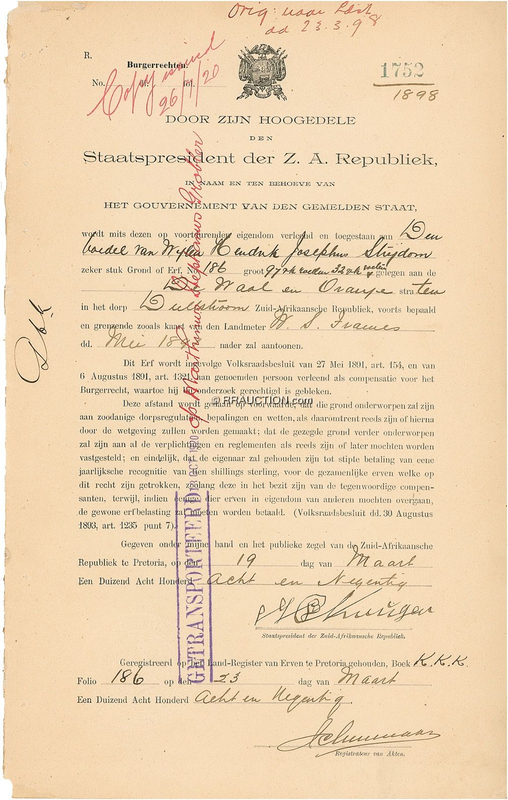 Orig: naar Last
dd 23.3.98
R.
Burgerrechten.
No. fol.
Copy issued
26/1/20
1752
1898
DOOR ZIJN HOOGEDELE
DEN
Staatspresident der Z. A. Republiek,
IN NAAM EN TEN BEHOEVE VAN
HET GOUVERNEMENT VAN DEN GEMELDEN STAAT,
wordt mits dezen op voortdurenden eigendom verleend en toegestaan aan Den
boedel van Wylen Hendrik Josephus Strijdom
zeker stuk Grond of Erf, No. 186 groot 97 □ roeden 32 □ voeten gelegen aan de
De Waal en Oranje straten
in het dorp Dullstroom Zuid-Afrikaansche Republiek, voorts bepaald
en grenzende zoals kaart van den Landmeter W. S. Frames
dd. Mei 18 nader zal aantoonen.
Dit Erf is ingevolge Volksraadsbesluit van 27 Mei 1891, art. 154, en van
6 Augustus 1891, art. 1321 aan genoemden persoon verleend als compensatie voor het
Burgerrecht, waartoe hij bij onderzoek gerechtigd is gebleken.
Deze afstand wordt gedaan op voorwaarde, dat die grond onderworpen zal zijn
aan zoodanige dorpsregulatiën, bepalingen en wetten, als daaromtrent reeds zijn of hierna
door de wetgeving zullen worden gemaakt; dat de gezegde grond verder onderworpen
zal zijn aan al de verplichtingen en reglementen als reeds zijn of later mochten worden
vastgesteld; en eindelijk, dat de eigenaar zal gehouden zijn tot stipte betaling van eene
jaarlijksche recognitie van tien shillings sterling, voor de gezamenlijke erven welke op
dit recht zijn getrokken, zolang deze in het bezit zijn van de tegenwoordige compen-
santen, terwijl, indien een of meer dier erven in eigendom van anderen mochten overgaan,
de gewone erfbelasting zal moeten worden betaald. (Volksraadsbesluit dd. 30 Augustus
1893, art. 1235 punt 7).
Gegeven onder mijne hand en het publieke zegel van de Zuid-Afrikaansche
Republiek te Pretoria, op den 19 dag van Maart
Een Duizend Acht Honderd Acht en Negentig
Staatspresident der Zuid-Afrikaansche Republiek.
Geregistreerd op het Land-Register van Erven te Pretoria gehouden, Boek K.K.K.
Folio 186 op den 23 dag van Maart
Een Duizend Acht Honderd Acht en Negentig
Registrateur van Akten.
GETRANSPORTEERD
© RRAUCTION.com